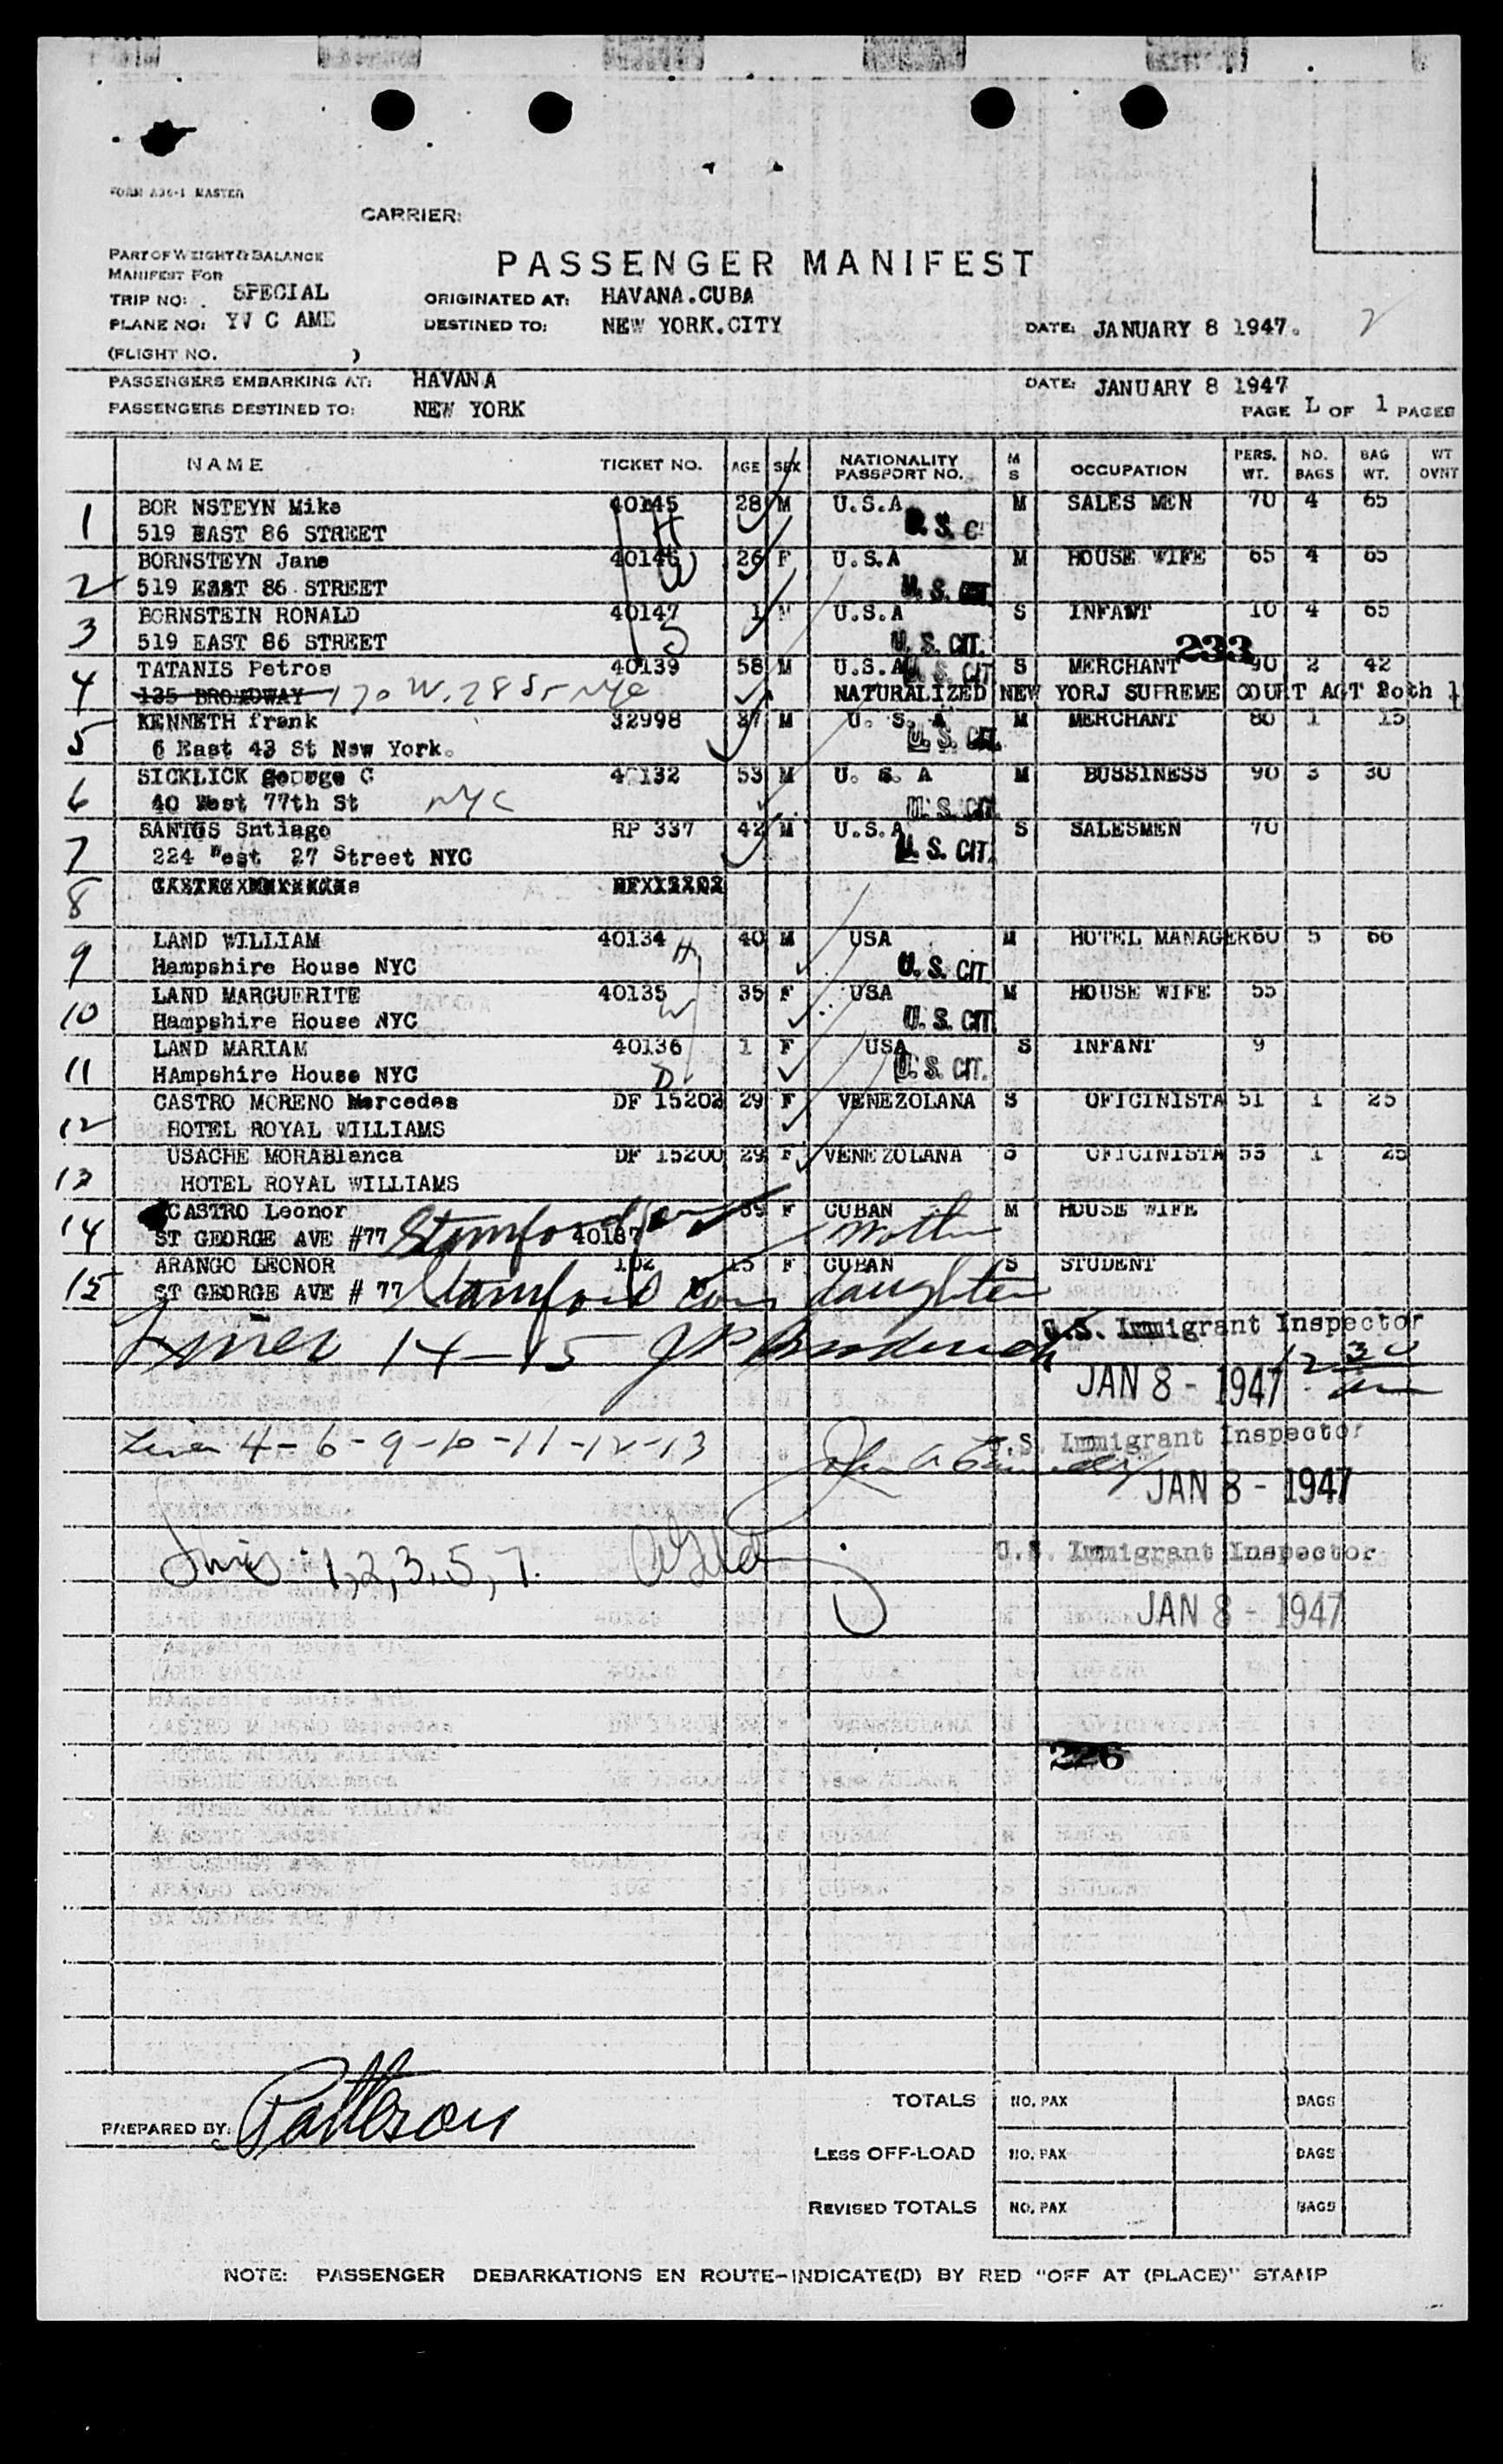 FORM A36-1 MASTER
CARRIER:
PART OF WEIGHT & BALANCE
MANIFEST FOR
PASSENGER MANIFEST
TRIP NO: . SPECIAL ORIGINATED AT: HAVANA.CUBA
PLANE NO: YV C AME DESTINED TO: NEW YORK.CITY DATE: JANUARY 8 1947. 2
(FLIGHT NO. )
PASSENGERS EMBARKING AT: HAVANA DATE: JANUARY 8 1947
PASSENGERS DESTINED TO: NEW YORK PAGE L OF 1 PAGES
NAME TICKET NO. AGE SEX NATIONALITY PASSPORT NO. M S OCCUPATION PERS. WT. NO. BAGS BAG WT. WT OVNT
1 BOR NSTEYN Mike 40145 28 M U.S.A M SALES MEN 70 4 65
519 EAST 86 STREET H U.S. C
2 BORNSTEYN Jane 40146 26 F U.S.A M HOUSE WIFE 65 4 65
519 EAST 86 STREET W U.S.
3 BORNSTEIN RONALD 40147 1 M U.S.A S INFANT 10 4 65
519 EAST 86 STREET S U.S. CIT. 233
4 TATANIS Petros 40139 58 M U.S.A U.S. CIT S MERCHANT 90 2 42
135 BROADWAY 170 W. 78 St NYC NATURALIZED NEW YORJ SUPREME COURT AGT Both 1
5 KENNETH frank 32998 37 M U. S. A M MERCHANT 80 1 15
6 East 43 St New York. U.S. CIT.
6 SICKLICK george C 40132 53 M U. S. A M BUSSINESS 90 3 30
40 West 77th St NYC U.S. CIT.
7 SANTOS Sntiago RP 337 42 M U.S.A S SALESMEN 70
224 West 27 Street NYC U.S. CIT.
8
9 LAND WILLIAM 40134 H 40 M USA M HOTEL MANAGER 60 5 66
Hampshire House NYC U.S. CIT
10 LAND MARGUERITE 40135 35 F USA M HOUSE WIFE 55
Hampshire House NYC W U.S. CIT
11 LAND MARIAM 40136 1 F USA S INFANT 9
HAmpshire House NYC D U.S. CIT.
12 CASTRO MORENO Mercedes DF 15202 29 F VENEZOLANA S OFICINISTA 51 1 25
HOTEL ROYAL WILLIAMS
13 USACHE MORABlanca DF 15200 29 F VENEZOLANA S OFICINISTA 53 1 25
HOTEL ROYAL WILLIAMS
14 CASTRO Leonor 39 F CUBAN M HOUSE WIFE
ST GEORGE AVE #77 Stamford 40187 Mother
15 ARANGO LEONOR 102 15 F CUBAN S STUDENT
ST GEORGE AVE # 77 Stamford Conn daughter
Lines 14-15 U.S. Immigrant Inspector
JAN 8 - 1947 12 30
Lines 4-6-9-10-11-12-13 John A U.S. Immigrant Inspector
JAN 8 - 1947
Lines 1,2,3,5,7. U.S. Immigrant Inspector
JAN 8 - 1947
226
PREPARED BY: Patterson
TOTALS NO. PAX BAGS
LESS OFF-LOAD NO. PAX BAGS
REVISED TOTALS NO. PAX BAGS
NOTE: PASSENGER DEBARKATIONS EN ROUTE-INDICATE(D) BY RED "OFF AT (PLACE)" STAMP